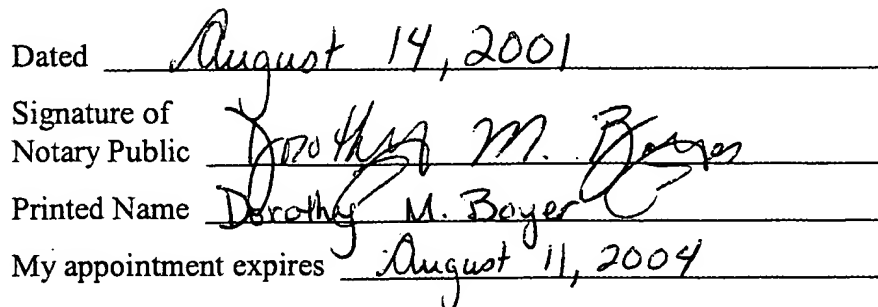 Dated August 14, 2001
Signature of
Notary Public Dorothy M. Boyer
Printed Name Dorothy M. Boyer
My appointment expires August 11, 2004